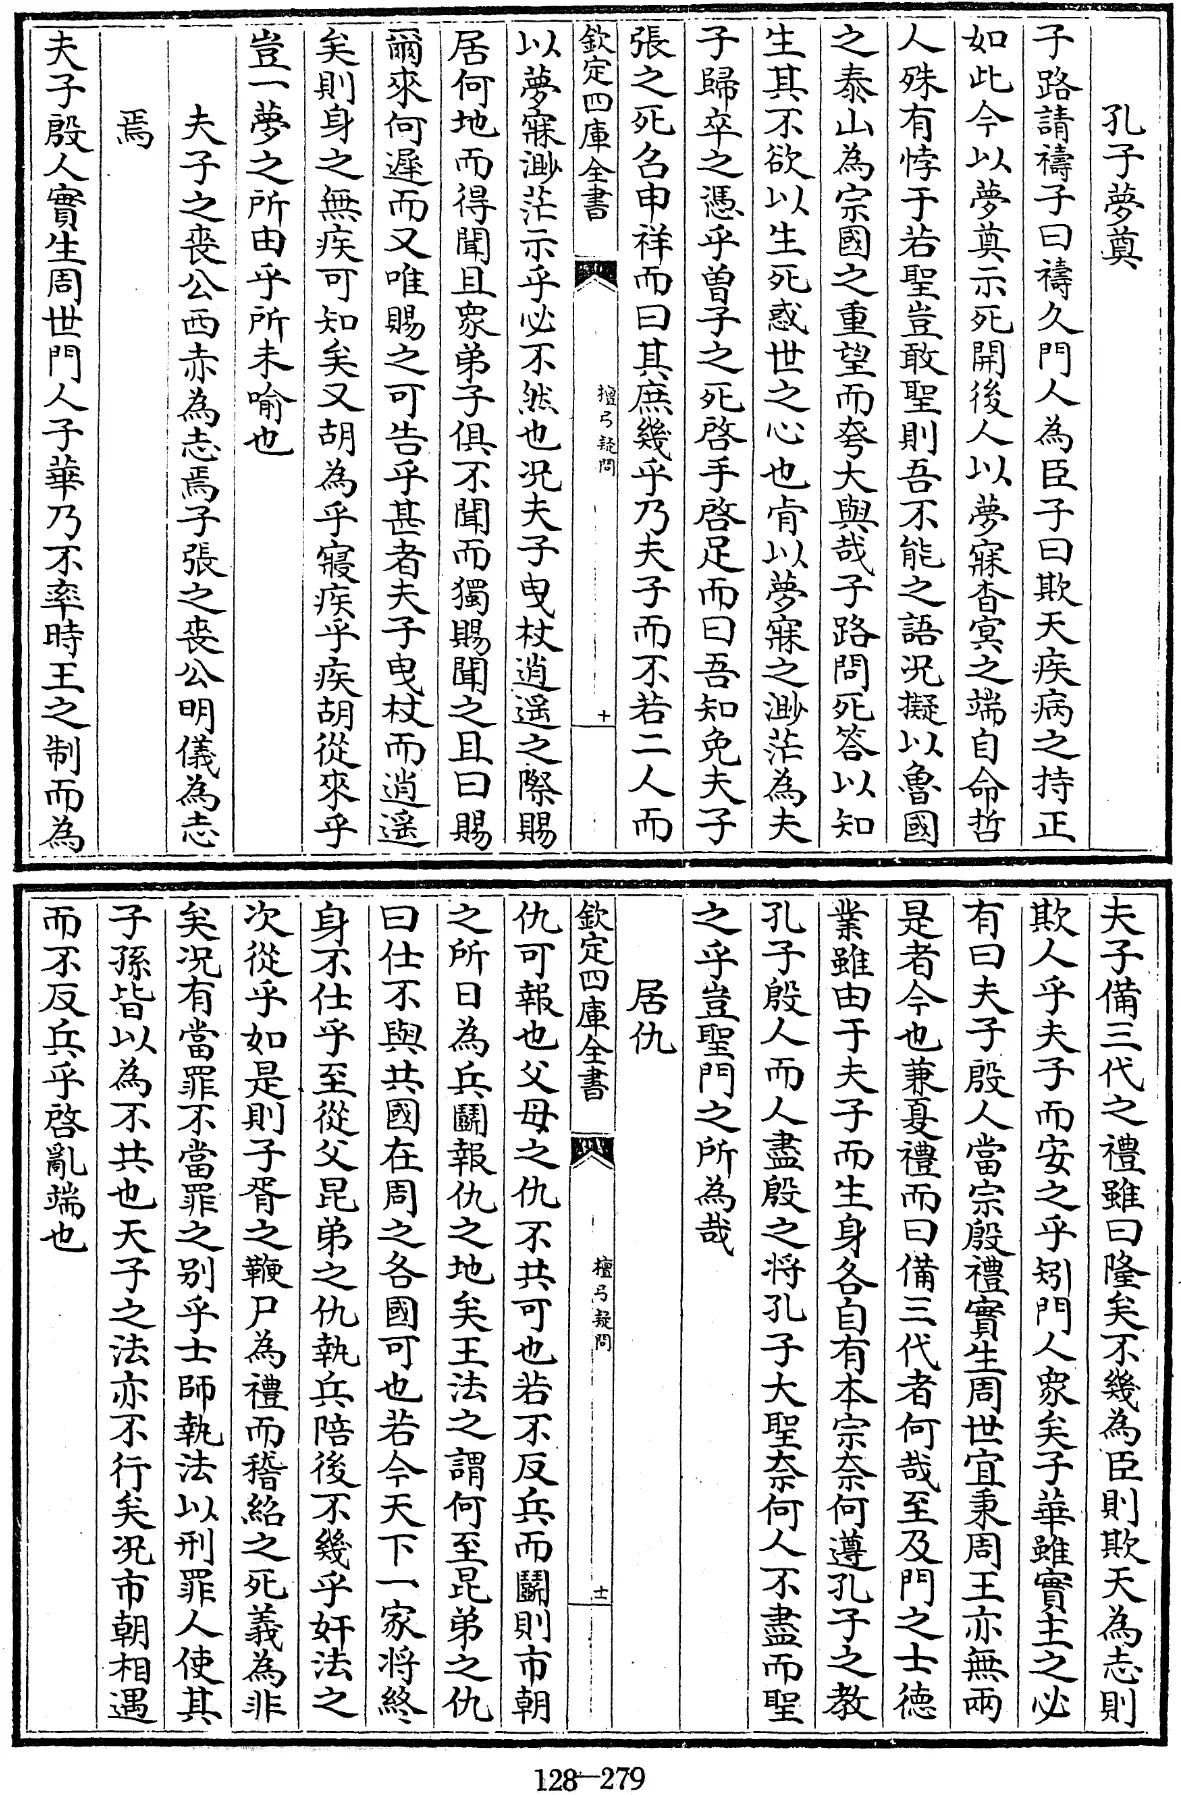 孔子夢奠
子路請禱子曰禱久門人為臣子曰欺天疾病之持正
如此今以夢奠示死開後人以夢寐杳冥之端自命哲
人殊有悖于若聖豈敢聖則吾不能之語况擬以魯國
之泰山為宗國之重望而夸大與哉子路問死答以知
生其不欲以生死惑世之心也肯以夢寐之渺茫為夫
子歸卒之憑乎曾子之死啓手啓足而曰吾知免夫子
張之死名申祥而曰其庶幾乎乃夫子而不若二人而
欽定四庫全書
檀弓疑問
十
以夢寐渺茫示乎必不然也况夫子曳杖逍遥之際賜
居何地而得聞且衆弟子俱不聞而獨賜聞之且曰賜
爾來何遲而又唯賜之可告乎甚者夫子曳杖而逍遥
矣則身之無疾可知矣又胡為乎寢疾乎疾胡從來乎
豈一夢之所由乎所未喻也
夫子之喪公西赤為志焉子張之喪公明儀為志
焉
夫子殷人實生周世門人子華乃不率時王之制而為
夫子備三代之禮雖曰隆矣不幾為臣則欺天為志則
欺人乎夫子而安之乎矧門人衆矣子華雖實主之必
有曰夫子殷人當宗殷禮實生周世宜秉周王亦無兩
是者今也兼夏禮而曰備三代者何哉至及門之士德
業雖由于夫子而生身各自有本宗奈何遵孔子之教
孔子殷人而人盡殷之将孔子大聖奈何人不盡而聖
之乎豈聖門之所為哉
居仇
欽定四庫全書
檀弓疑問
十一
仇可報也父母之仇不共可也若不反兵而鬭則市朝
之所日為兵鬭報仇之地矣王法之謂何至昆弟之仇
曰仕不與共國在周之各國可也若今天下一家将終
身不仕乎至從父昆弟之仇執兵陪後不幾乎奸法之
次從乎如是則子胥之鞭尸為禮而嵇紹之死義為非
矣况有當罪不當罪之别乎士師執法以刑罪人使其
子孫皆以為不共也天子之法亦不行矣况市朝相遇
而不反兵乎啓亂端也
128—279